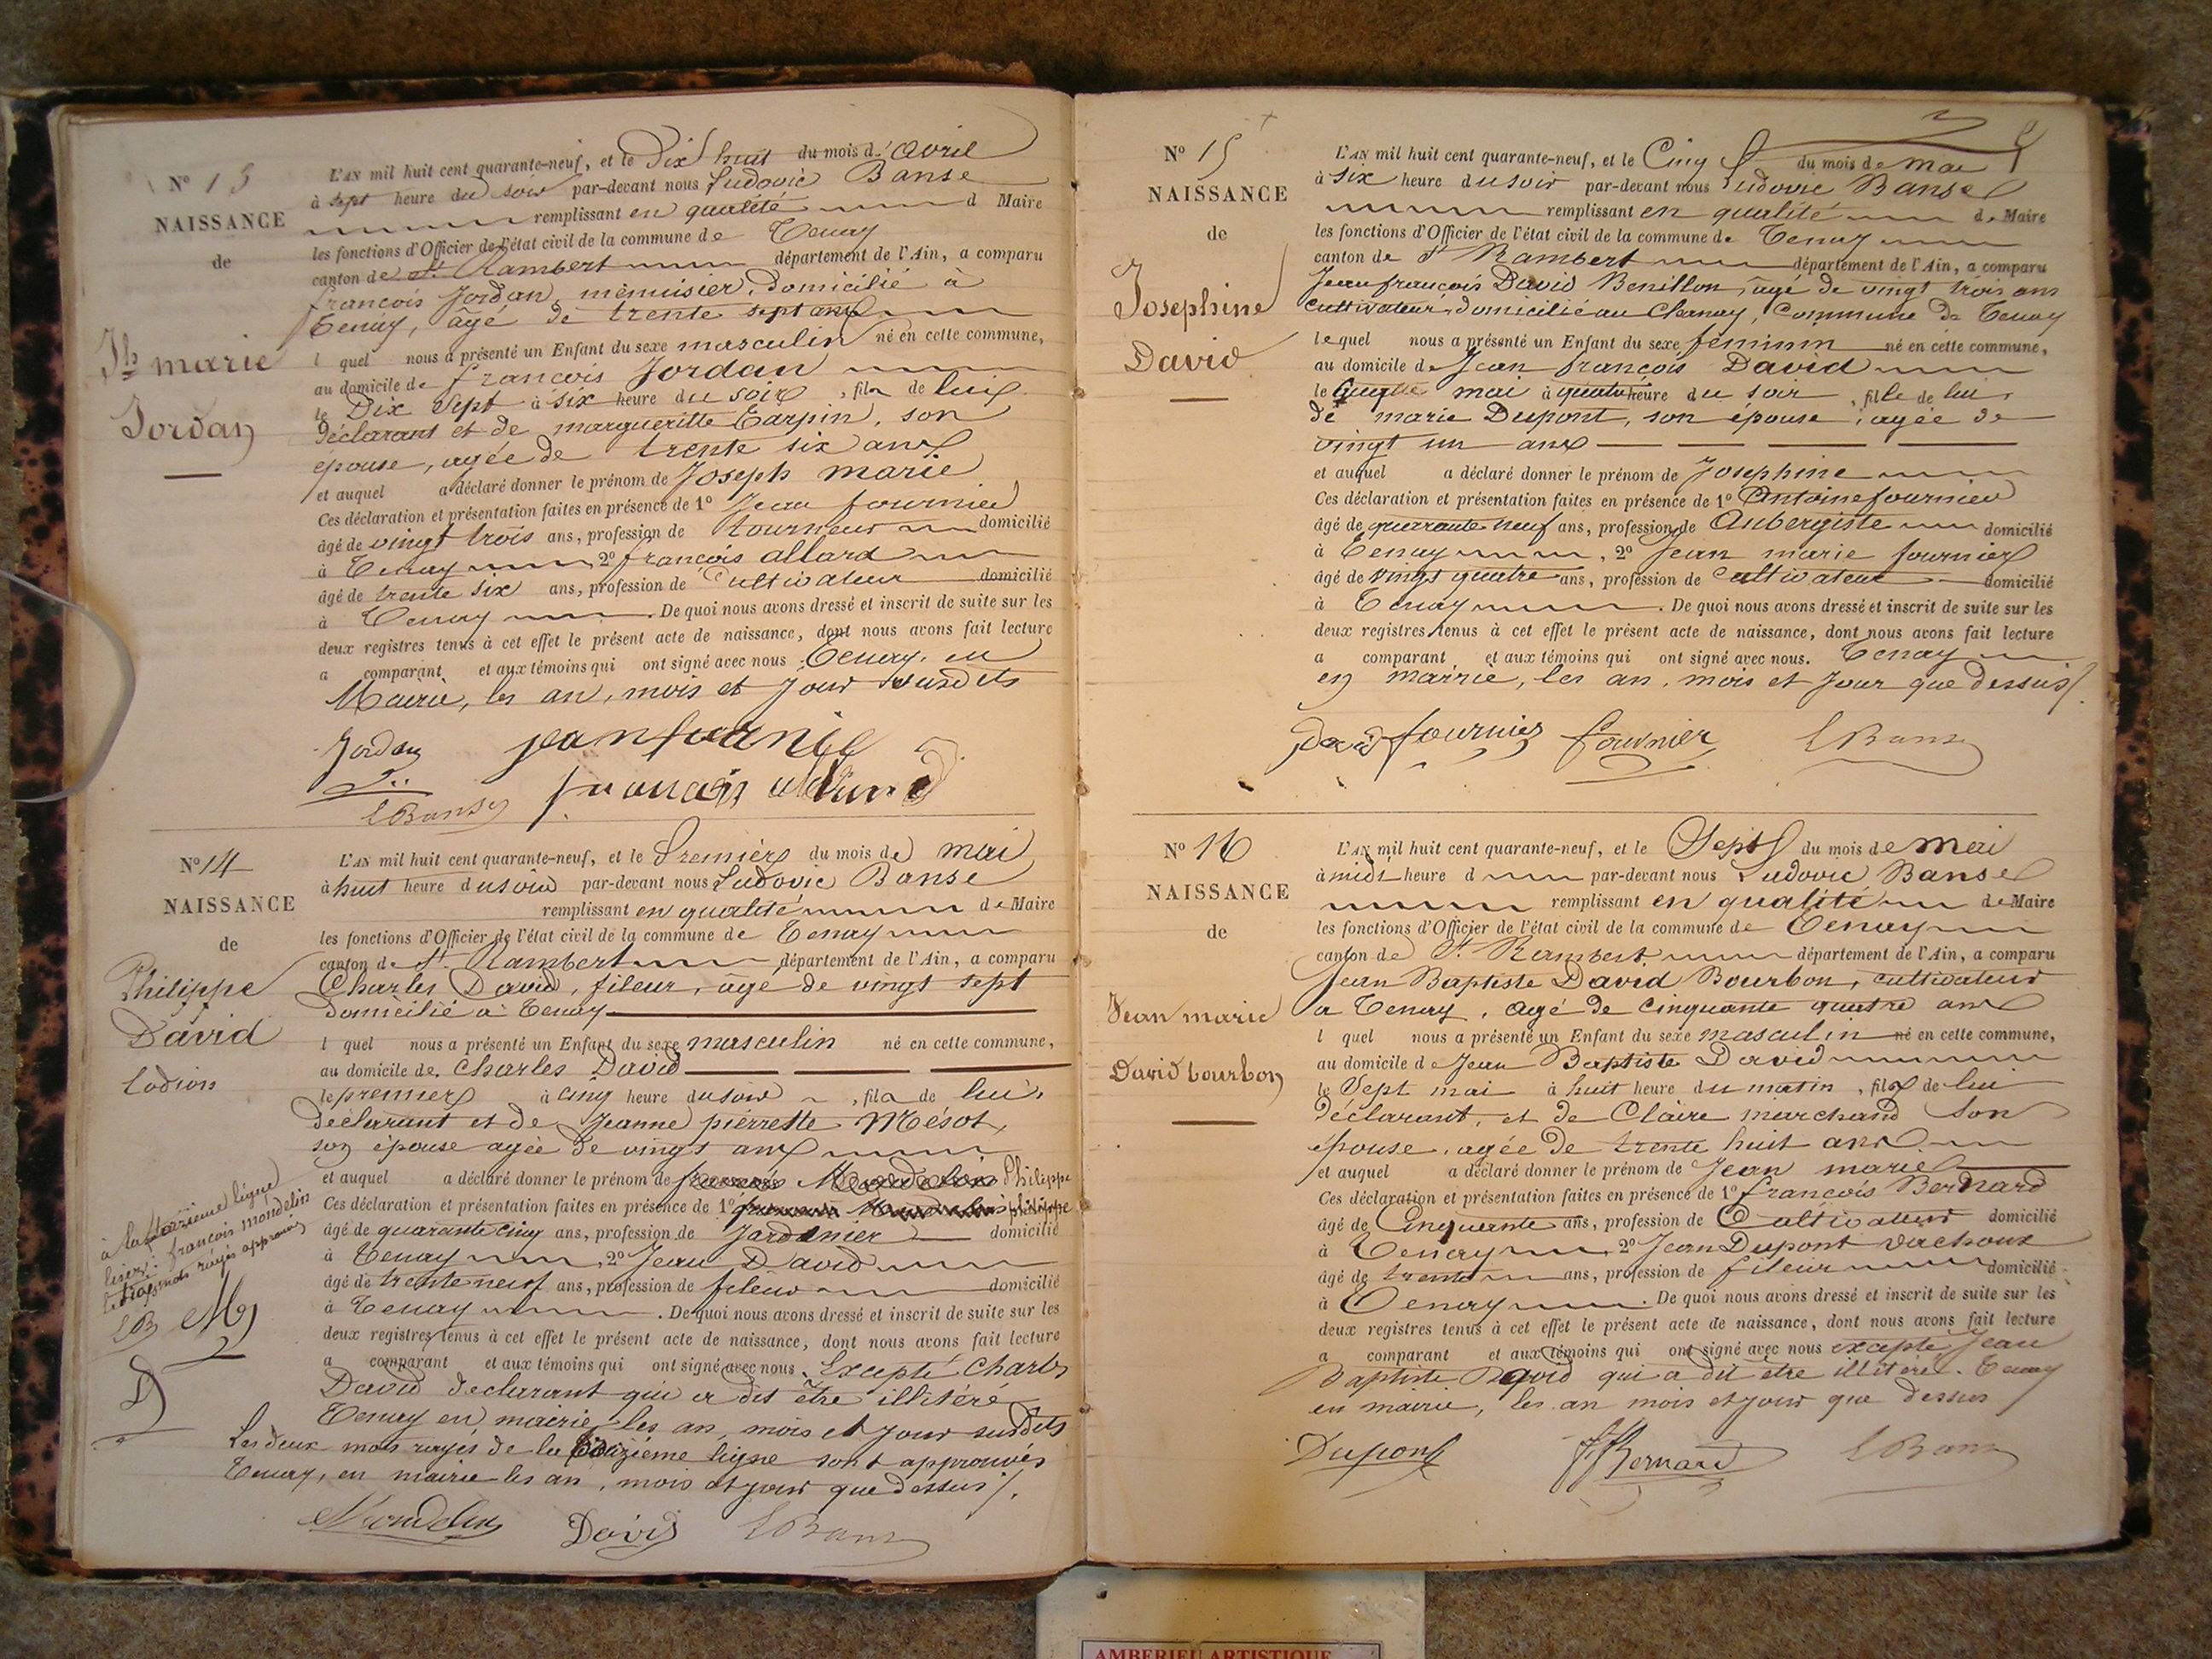 N° 13
NAISSANCE
de
Jh marie
Jordan
L'AN mil huit cent quarante-neuf, et le Dix huit du mois d'avril
à sept heure du soir par-devant nous Ludovic Banse
remplissant en qualité d Maire
les fonctions d'Officier de l'état civil de la commune de Tenay
canton de St Rambert département de l'Ain, a comparu
francois Jordan menuisier, domicilié à
Tenay, âgé de trente sept ans
l quel nous a présenté un Enfant du sexe masculin né en cette commune,
au domicile de francois Jordan
le Dix sept à six heure du soir, fils de lui
déclarant et de margueritte Carpin, son
épouse, agée de trente six ans
et auquel a déclaré donner le prénom de Joseph marie
Ces déclaration et présentation faites en présence de 1° Jean fournier
âgé de vingt trois ans, profession de tourneur domicilié
à Tenay 2° francois allard
âgé de trente six ans, profession de Cultivateur domicilié
à Tenay. De quoi nous avons dressé et inscrit de suite sur les
deux registres tenus à cet effet le présent acte de naissance, dont nous avons fait lecture
a comparant et aux témoins qui ont signé avec nous. Tenay, en
Mairie, les an, mois et jour susdits
Jordan jean furnie
LBanse
N° 14
NAISSANCE
de
Philippe
David
L'AN mil huit cent quarante-neuf, et le Premier du mois de mai
à huit heure du soir par-devant nous Ludovic Banse
remplissant en qualité de Maire
les fonctions d'Officier de l'état civil de la commune de Tenay
canton de St Rambert département de l'Ain, a comparu
Charles David, fileur, âgé de vingt sept
domicilié à Tenay
l quel nous a présenté un Enfant du sexe masculin né en cette commune,
au domicile de Charles David
le premier à cinq heure du soir, fils de lui,
déclarant et de Jeanne pierrette Mésot,
son épouse agée de vingt ans
et auquel a déclaré donner le prénom de Philippe
Ces déclaration et présentation faites en présence de 1° philippe
âgé de quarante cinq ans, profession de Jardinier domicilié
à Tenay, 2° Jean David
âgé de trente neuf ans, profession de fileur domicilié
à Tenay. De quoi nous avons dressé et inscrit de suite sur les
deux registres tenus à cet effet le présent acte de naissance, dont nous avons fait lecture
a comparant et aux témoins qui ont signé avec nous. Excepté Charles
David declarant qui a dit être illitéré
Tenay en mairie les an, mois et jour susdits
Les deux mots rayés de la ligne sont approuvés
Tenay, en mairie les an, mois et jour que dessus /.
à la ligne
lisez: francois mondelin
mots rayés approuvés
LB M
D
Mondelin David LBanse
N° 15
NAISSANCE
de
Josephine
David
L'AN mil huit cent quarante-neuf, et le Cinq du mois de mai
à six heure du soir par-devant nous Ludovic Banse
remplissant en qualité de Maire
les fonctions d'Officier de l'état civil de la commune de Tenay
canton de St Rambert département de l'Ain, a comparu
Jean francois David Benillon, âgé de vingt trois ans
cultivateur, domicilié au Chanay, Commune de Tenay
lequel nous a présenté un Enfant du sexe féminin né en cette commune,
au domicile de Jean françois David
le mai à quatre heure du soir, fille de lui,
de marie Dupont, son épouse, agée de
vingt un ans
et auquel a déclaré donner le prénom de Josephine
Ces déclaration et présentation faites en présence de 1° Antoine fournier
âgé de quarante neuf ans, profession de Aubergiste domicilié
à Tenay, 2° Jean marie fournier
âgé de vingt quatre ans, profession de cultivateur domicilié
à Tenay. De quoi nous avons dressé et inscrit de suite sur les
deux registres tenus à cet effet le présent acte de naissance, dont nous avons fait lecture
a comparant, et aux témoins qui ont signé avec nous. Tenay
en mairie, les an, mois et jour que dessus /.
David fournier fournier LBanse
N° 16
NAISSANCE
de
Jean marie
David bourbon
L'AN mil huit cent quarante-neuf, et le Sept du mois de mai
à midi heure d par-devant nous Ludovic Banse
remplissant en qualité de Maire
les fonctions d'Officier de l'état civil de la commune de Tenay
canton de St Rambert département de l'Ain, a comparu
Jean Baptiste David Bourbon, cultivateur
a Tenay, agé de Cinquante quatre ans
l quel nous a présenté un Enfant du sexe masculin né en cette commune,
au domicile de Jean Baptiste David
le Sept mai à huit heure du matin, fils de lui
déclarant, et de Claire marchand son
épouse, agée de trente huit ans
et auquel a déclaré donner le prénom de Jean marie
Ces déclaration et présentation faites en présence de 1° francois Bernard
âgé de Cinquante ans, profession de Cultivateur domicilié
à Tenay 2° Jean Dupont
âgé de trente ans, profession de fileur domicilié
à Tenay. De quoi nous avons dressé et inscrit de suite sur les
deux registres tenus à cet effet le présent acte de naissance, dont nous avons fait lecture
a comparant et aux témoins qui ont signé avec nous excepté Jean
Baptiste David qui a dit être illitéré. Tenay
en mairie, les an mois et jour que dessus /
Dupont Bernard LBanse
AMBERIEU ARTISTIQUE